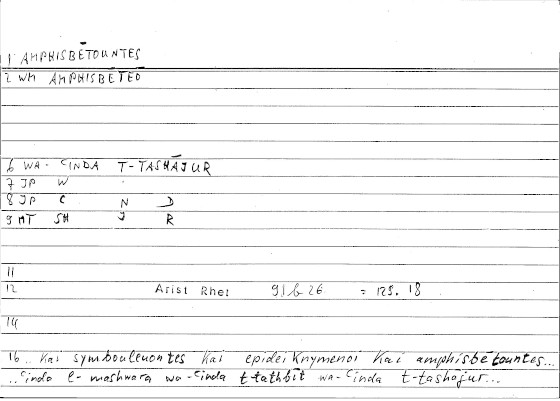 1 AMPHISBĒTOUNTES
2 WM AMPHISBĒTEO
6 WA- ʿINDA T-TASHĀJUR
7 JP W
8 JP C N D
9 MT SH J R
11
12 Arist Rhet 91b26 = 129.18
14
16 .. kai symbouleuontes kai epideiknymenoi kai amphisbētountes...
..ʿinda l-mashwara wa-ʿinda t-tathbīt wa-ʿinda t-tashājur...